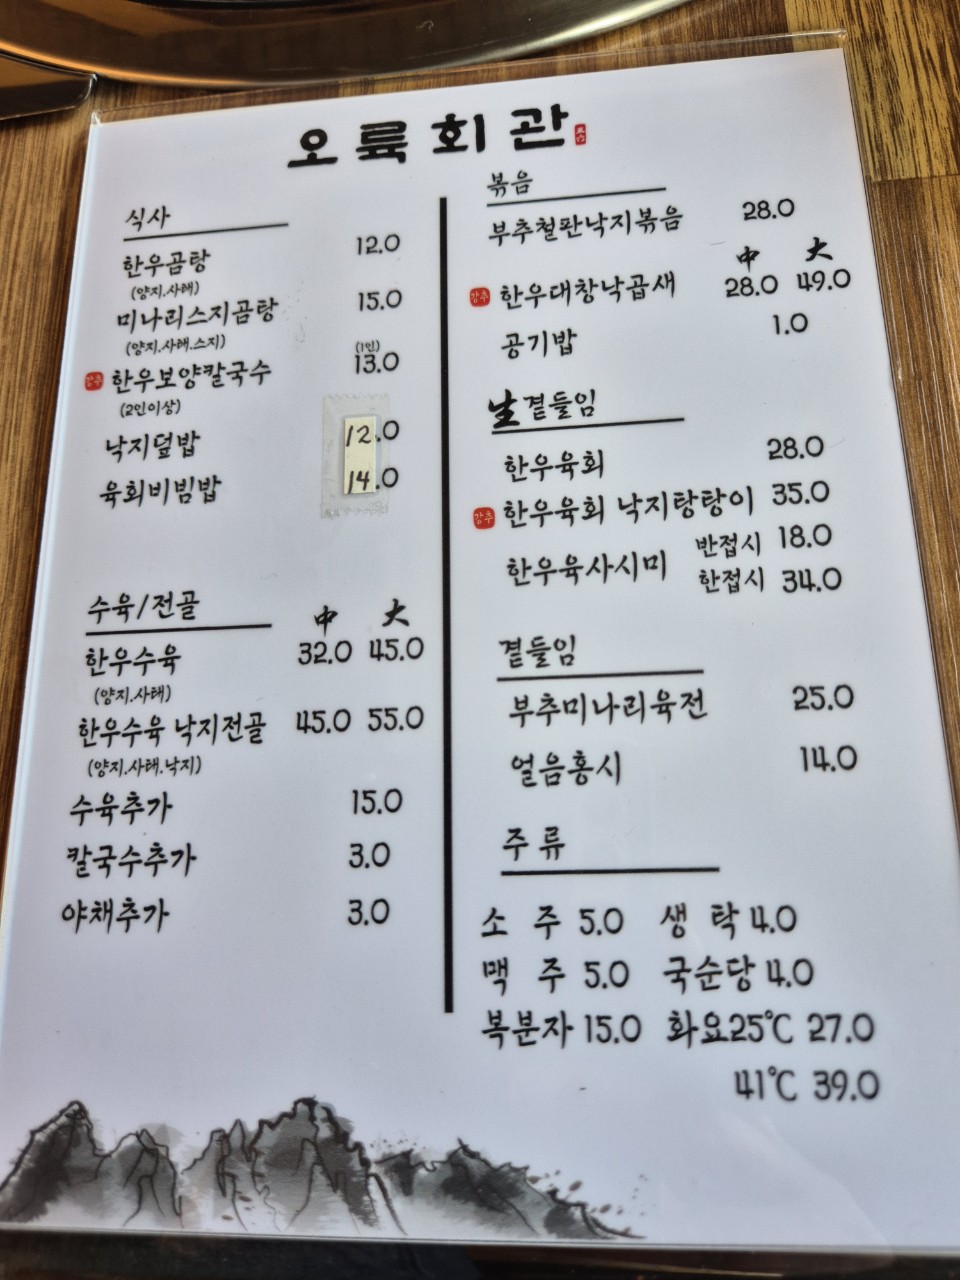 오륙회관
식사
한우곰탕 12.0
(양지.사태)
미나리스지곰탕 15.0
(양지.사태.스지)
(1인)
강추 한우보양칼국수 13.0
(2인이상)
낙지덮밥 12.0
육회비빔밥 14.0
수육/전골 中 大
한우수육 32.0 45.0
(양지.사태)
한우수육 낙지전골 45.0 55.0
(양지.사태.낙지)
수육추가 15.0
칼국수추가 3.0
야채추가 3.0
볶음
부추철판낙지볶음 28.0
中 大
강추 한우대창낙곱새 28.0 49.0
공기밥 1.0
生곁들임
한우육회 28.0
강추 한우육회 낙지탕탕이 35.0
한우육사시미 반접시 18.0
한접시 34.0
곁들임
부추미나리육전 25.0
얼음홍시 14.0
주류
소주 5.0 생탁 4.0
맥주 5.0 국순당 4.0
복분자 15.0 화요25℃ 27.0
41℃ 39.0